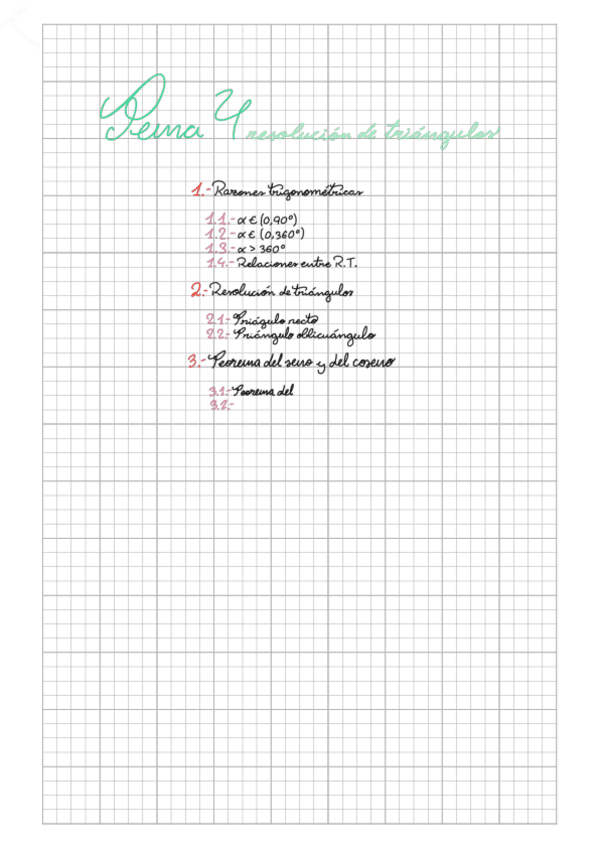 Tema 4 resolución de triángulos
1.- Razones trigonométricas
1.1.- α ∈ (0,90º)
1.2.- α ∈ (0,360º)
1.3.- α > 360º
1.4.- Relaciones entre R.T.
2.- Resolución de triángulos
2.1- Triágulo recto
2.2.- Triángulo oblicuángulo
3.- Teorema del seno y del coseno
3.1.- Teorema del
3.2.-